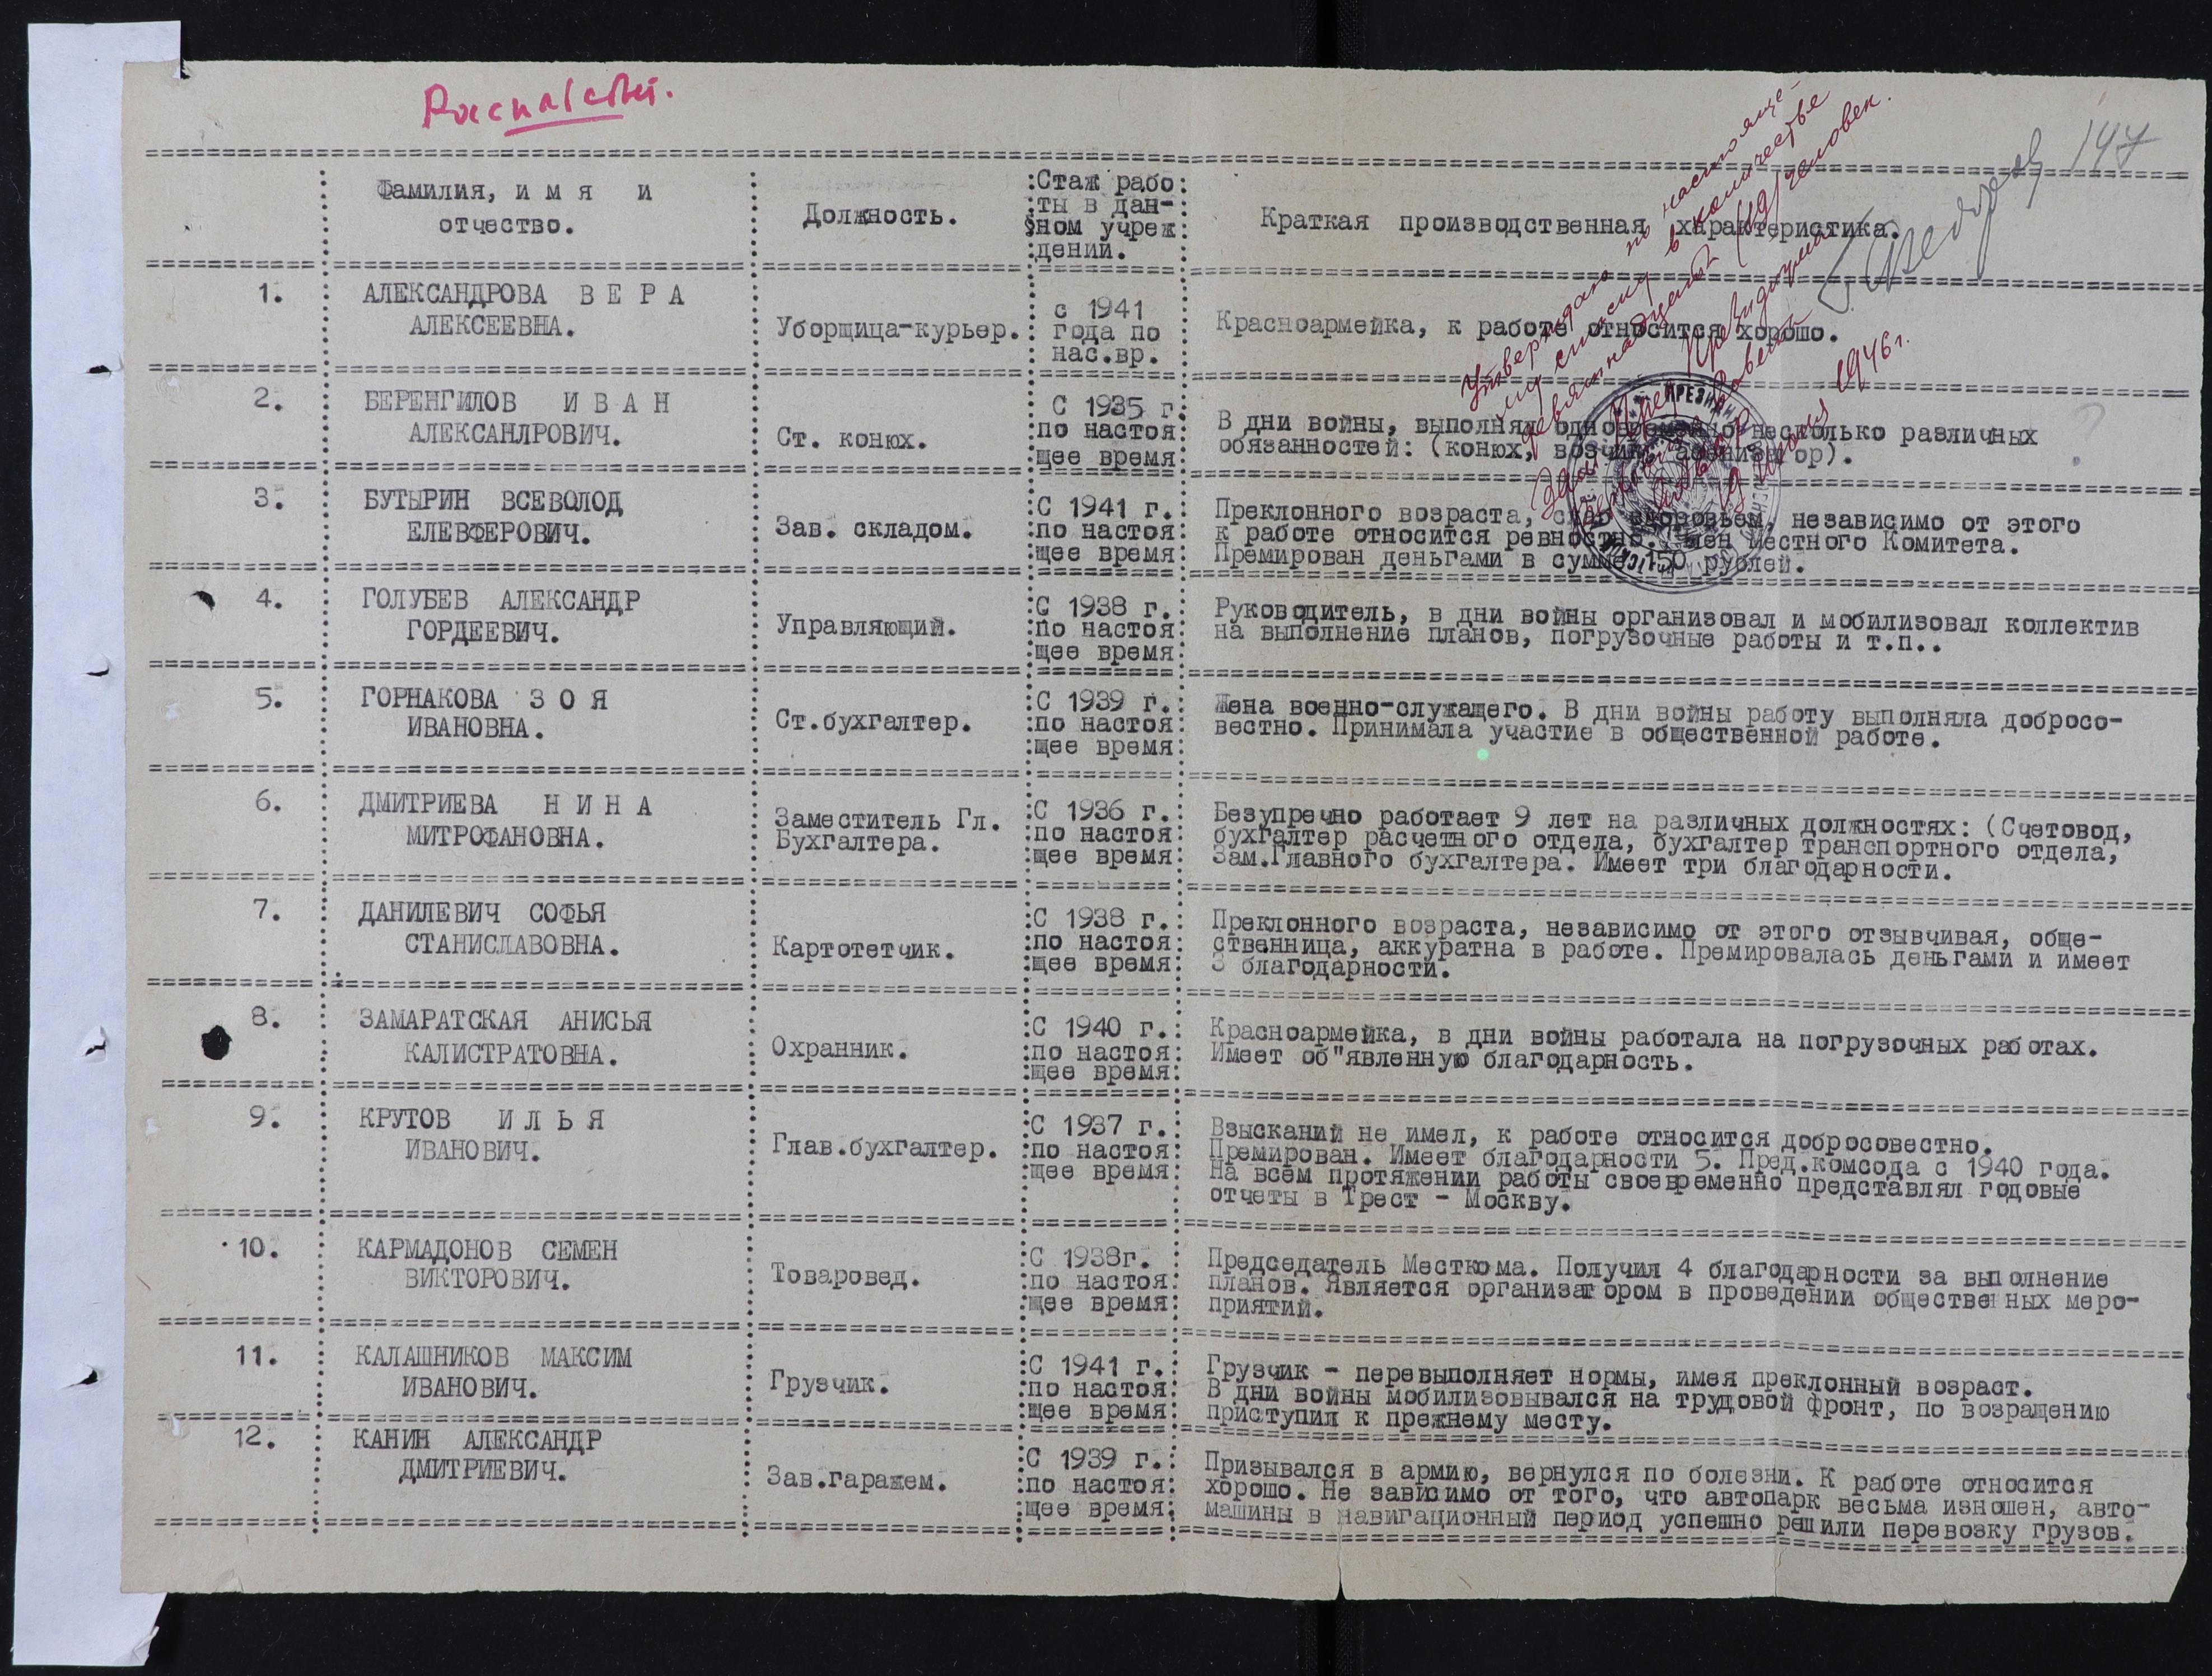 147
Фамилия, и м я и
отчество.
Должность.
Стаж рабо
ты в дан-
ном учреж
дении.
Краткая производственная характеристика.
1.
АЛЕКСАНДРОВА В Е Р А
АЛЕКСЕЕВНА.
Уборщица-курьер.
с 1941
года по
нас.вр.
Красноармейка, к работе относится хорошо.
2.
БЕРЕНГИЛОВ И В А Н
АЛЕКСАНЛРОВИЧ.
Ст. конюх.
С 1935 г.
по настоя
щее время
В дни войны, выполнял одновременно несколько различных
обязанностей: (конюх, возчик, ассенизатор).
3.
БУТЫРИН ВСЕВОЛОД
ЕЛЕВФЕРОВИЧ.
Зав. складом.
С 1941 г.
по настоя
щее время
Преклонного возраста, слаб здоровьем, независимо от этого
к работе относится ревностно. Член Местного Комитета.
Премирован деньгами в сумме 150 рублей.
4.
ГОЛУБЕВ АЛЕКСАНДР
ГОРДЕЕВИЧ.
Управляющий.
С 1938 г.
по настоя
щее время
Руководитель, в дни войны организовал и мобилизовал коллектив
на выполнение планов, погрузочные работы и т.п..
5.
ГОРНАКОВА З О Я
ИВАНОВНА.
Ст.бухгалтер.
С 1939 г.
по настоя
щее время
Жена военно-служащего. В дни войны работу выполняла добросо-
вестно. Принимала участие в общественной работе.
6.
ДМИТРИЕВА Н И Н А
МИТРОФАНОВНА.
Заместитель Гл.
Бухгалтера.
С 1936 г.
по настоя
щее время
Безупречно работает 9 лет на различных должностях: (Счетовод,
бухгалтер расчетного отдела, бухгалтер транспортного отдела,
Зам.Главного бухгалтера. Имеет три благодарности.
7.
ДАНИЛЕВИЧ СОФЬЯ
СТАНИСЛАВОВНА.
Картотетчик.
С 1938 г.
по настоя
щее время
Преклонного возраста, независимо от этого отзывчивая, обще-
ственница, аккуратна в работе. Премировалась деньгами и имеет
3 благодарности.
8.
ЗАМАРАТСКАЯ АНИСЬЯ
КАЛИСТРАТОВНА.
Охранник.
С 1940 г.
по настоя
щее время
Красноармейка, в дни войны работала на погрузочных работах.
Имеет об"явленную благодарность.
9.
КРУТОВ И Л Ь Я
ИВАНОВИЧ.
Глав.бухгалтер.
С 1937 г.
по настоя
щее время
Взысканий не имел, к работе относится добросовестно.
Премирован. Имеет благодарности 5. Пред.комсода с 1940 года.
На всем протяжении работы своевременно представлял годовые
отчеты в Трест - Москву.
10.
КАРМАДОНОВ СЕМЕН
ВИКТОРОВИЧ.
Товаровед.
С 1938г.
по настоя
щее время
Председатель Месткома. Получил 4 благодарности за выполнение
планов. Является организатором в проведении общественных меро-
приятий.
11.
КАЛАШНИКОВ МАКСИМ
ИВАНОВИЧ.
Грузчик.
С 1941 г.
по настоя
щее время
Грузчик - перевыполняет нормы, имея преклонный возраст.
В дни войны мобилизовывался на трудовой фронт, по возращению
приступил к прежнему месту.
12.
КАНИН АЛЕКСАНДР
ДМИТРИЕВИЧ.
Зав.гаражем.
С 1939 г.
по настоя
щее время
Призывался в армию, вернулся по болезни. К работе относится
хорошо. Не зависимо от того, что автопарк весьма изношен, авто-
машины в навигационный период успешно решили перевозку грузов.
Утверждаю по настояще-
му списку в количестве
девятнадцати (19) человек.
1946 г.